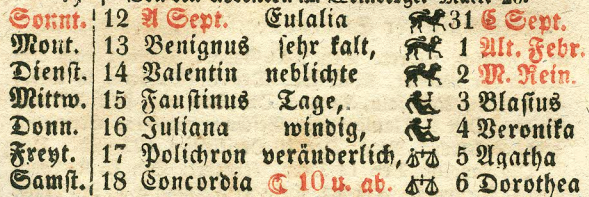 Sonnt. 12 A Sept. Eulalia 31 C Sept.
Mont. 13 Benignus sehr kalt, 1 Alt. Febr.
Dienst. 14 Valentin neblichte 2 M. Rein.
Mittw. 15 Faustinus Tage, 3 Blasius
Donn. 16 Juliana windig, 4 Veronika
Freyt. 17 Polichron veränderlich, 5 Agatha
Samst. 18 Concordia ☾ 10 u. ab. 6 Dorothea